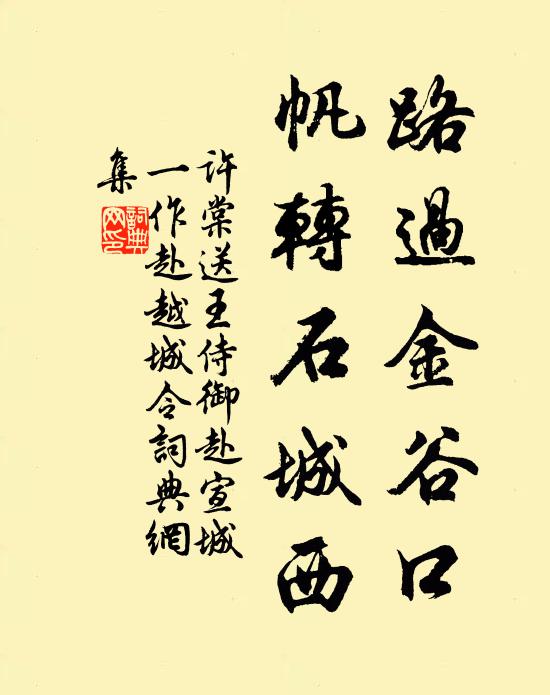 路過金谷口
帆轉石城西
許棠送王侍御赴宣城
一作赴越城令詞典網
集
詞典
网印